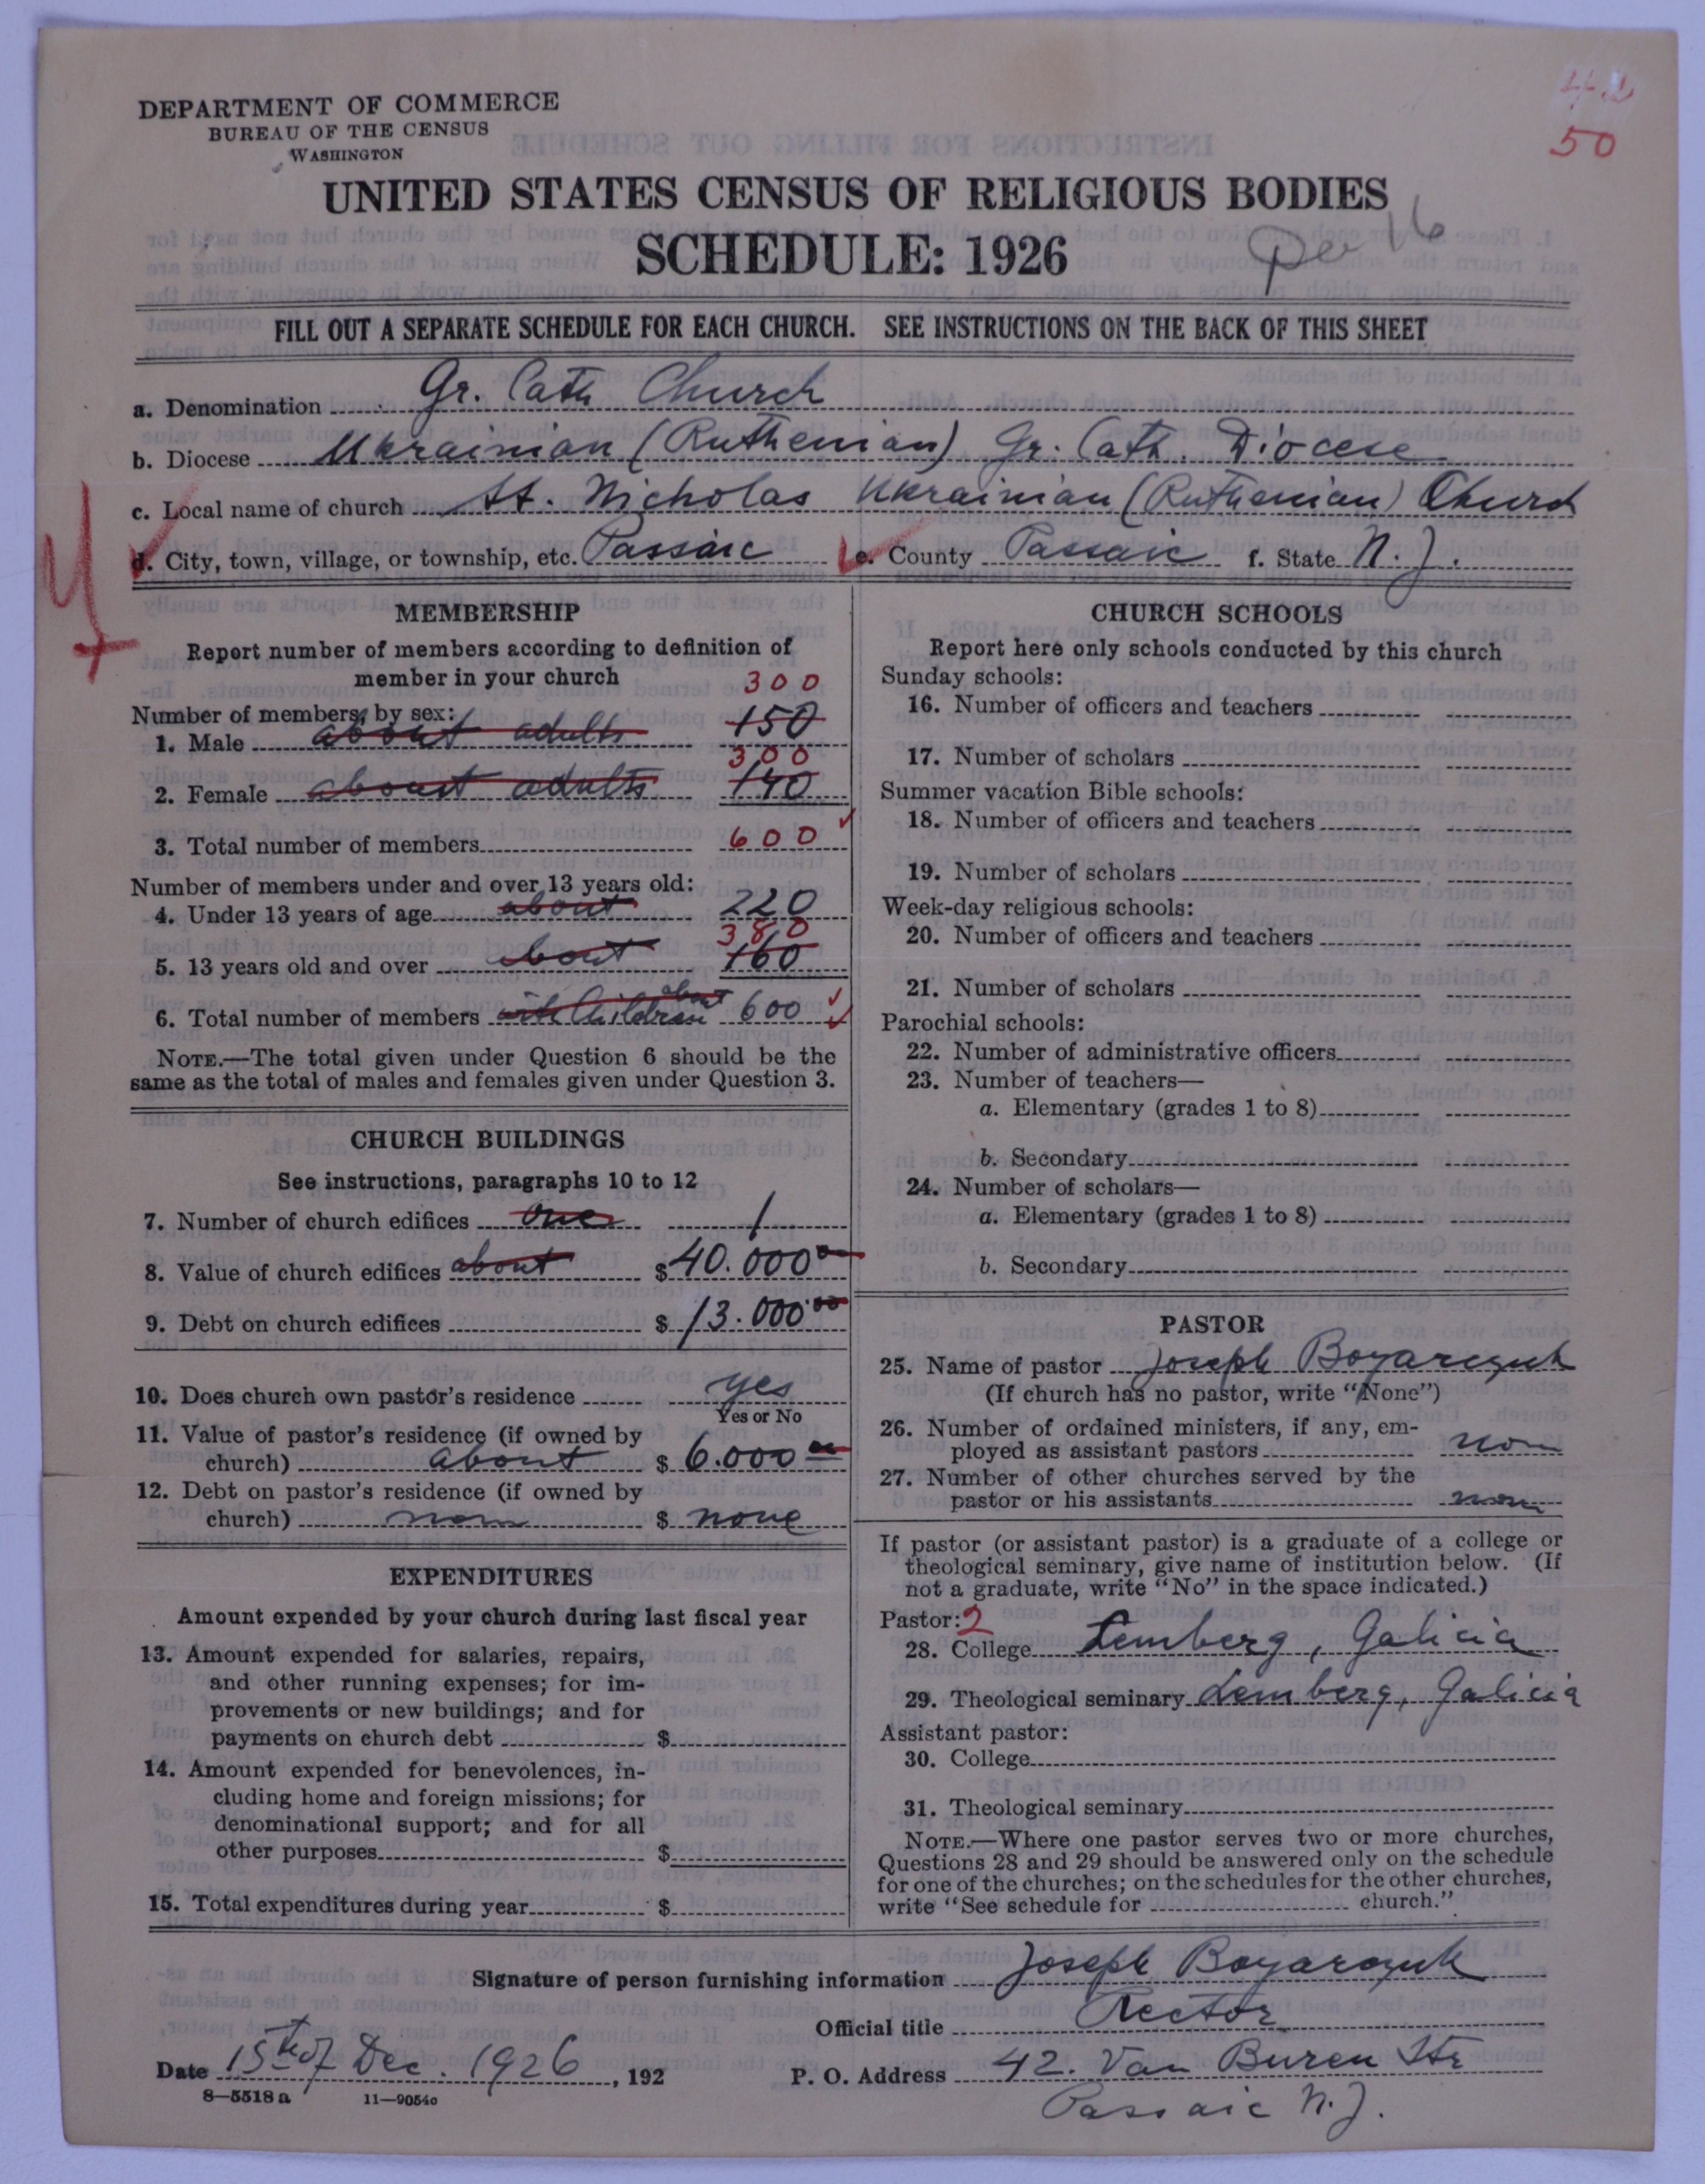 42
50
DEPARTMENT OF COMMERCE
BUREAU OF THE CENSUS
WASHINGTON
UNITED STATES CENSUS OF RELIGIOUS BODIES
SCHEDULE: 1926
FILL OUT A SEPARATE SCHEDULE FOR EACH CHURCH. SEE INSTRUCTIONS ON THE BACK OF THIS SHEET
a. Denomination Gr. Cath Church
b. Diocese Ukrainian (Ruthenian) Gr. Cath. Diocese
c. Local name of church St. Nicholas Ukrainian (Ruthenian) Church
d. City, town, village, or township, etc. Passaic e. County Passaic f. State N. J.
MEMBERSHIP
Report number of members according to definition of
member in your church
300
Number of members, by sex:
1. Male about adults 150
300
2. Female about adults 140
3. Total number of members 600
Number of members under and over 13 years old:
4. Under 13 years of age about 220
380
5. 13 years old and over about 160
6. Total number of members with Children about 600
NOTE.—The total given under Question 6 should be the
same as the total of males and females given under Question 3.
CHURCH BUILDINGS
See instructions, paragraphs 10 to 12
7. Number of church edifices one 1
8. Value of church edifices about $ 40.000 00
9. Debt on church edifices $ 13.000 00
10. Does church own pastor's residence yes
Yes or No
11. Value of pastor's residence (if owned by
church) about $ 6.000 00
12. Debt on pastor's residence (if owned by
church) non $ none
EXPENDITURES
Amount expended by your church during last fiscal year
13. Amount expended for salaries, repairs,
and other running expenses; for im-
provements or new buildings; and for
payments on church debt $
14. Amount expended for benevolences, in-
cluding home and foreign missions; for
denominational support; and for all
other purposes $
15. Total expenditures during year $
CHURCH SCHOOLS
Report here only schools conducted by this church
Sunday schools:
16. Number of officers and teachers
17. Number of scholars
Summer vacation Bible schools:
18. Number of officers and teachers
19. Number of scholars
Week-day religious schools:
20. Number of officers and teachers
21. Number of scholars
Parochial schools:
22. Number of administrative officers
23. Number of teachers—
a. Elementary (grades 1 to 8)
b. Secondary
24. Number of scholars—
a. Elementary (grades 1 to 8)
b. Secondary
PASTOR
25. Name of pastor Joseph Boyarczuk
(If church has no pastor, write "None")
26. Number of ordained ministers, if any, em-
ployed as assistant pastors non
27. Number of other churches served by the
pastor or his assistants non
If pastor (or assistant pastor) is a graduate of a college or
theological seminary, give name of institution below. (If
not a graduate, write "No" in the space indicated.)
Pastor: 2
28. College Lemberg, Galicia
29. Theological seminary Lemberg, Galicia
Assistant pastor:
30. College
31. Theological seminary
NOTE.—Where one pastor serves two or more churches,
Questions 28 and 29 should be answered only on the schedule
for one of the churches; on the schedules for the other churches,
write "See schedule for church."
Signature of person furnishing information Joseph Boyarczuk
Official title Rector
Date 15th of Dec. 1926, 192
P. O. Address 42. Van Buren Str
Passaic N. J.
8—5518 a 11—9054o